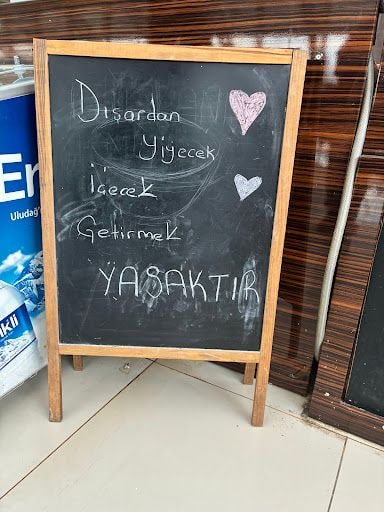 Dışardan
Yiyecek
İçecek
Getirmek
YASAKTIR
Er
Uludağ'